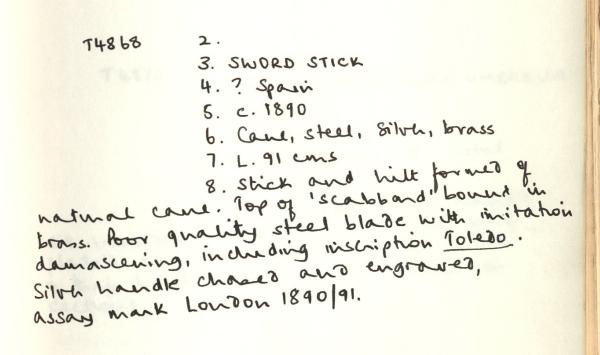 T4868 2.
3. SWORD STICK
4. ? Spain
5. c. 1890
6. Cane, steel, silver, brass
7. L. 91 cms
8. Stick and hilt formed of
natural cane. Top of 'scabbard' bound in
brass. Poor quality steel blade with imitation
damascening, including inscription Toledo.
Silver handle chased and engraved,
assay mark London 1890/91.